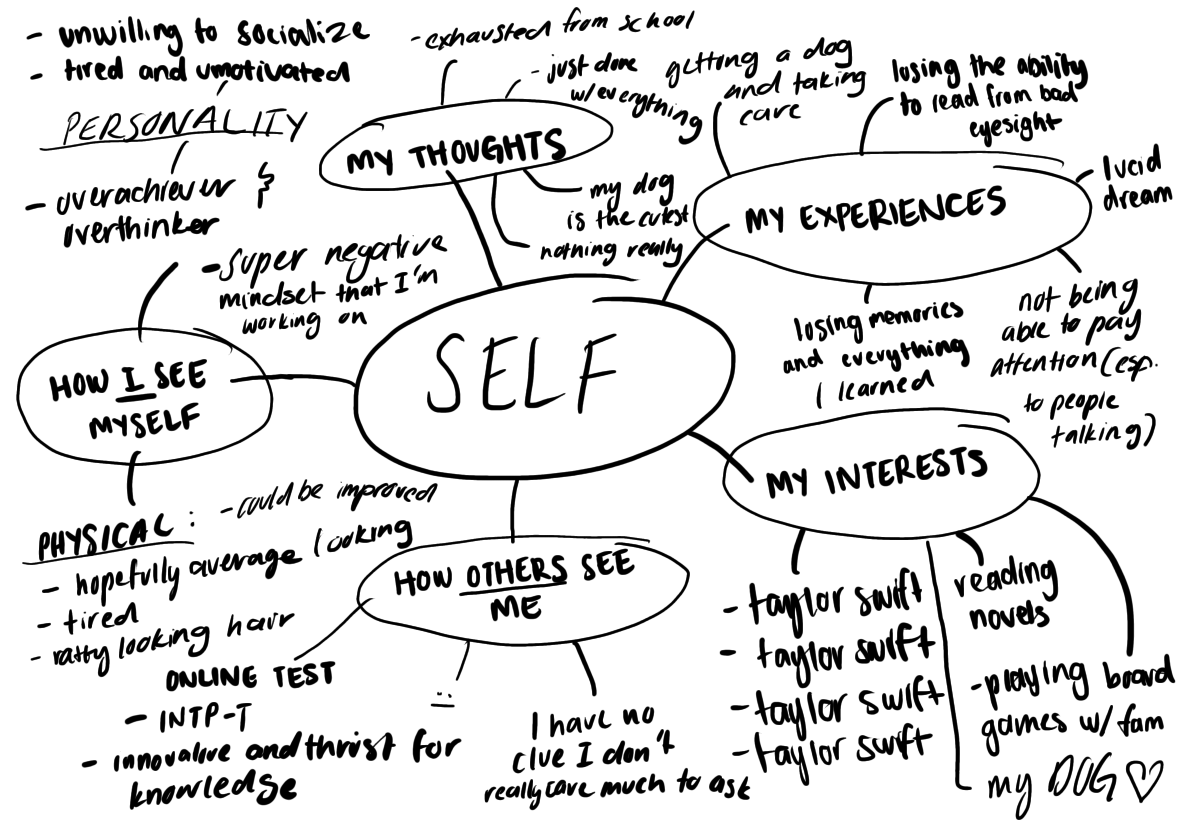 - unwilling to socialize
- tired and unmotivated
PERSONALITY
- overachiever &
overthinker
- super negative
mindset that I'm
working on
HOW I SEE
MYSELF
PHYSICAL : - could be improved
- hopefully average looking
- tired
- ratty looking hair
- exhausted from school
- just done
w/ everything
MY THOUGHTS
my dog
is the cutest
nothing really
getting a dog
and taking
care
losing the ability
to read from bad
eyesight
lucid
dream
MY EXPERIENCES
losing memories
and everything
I learned
not being
able to pay
attention (esp.
to people
talking)
SELF
MY INTERESTS
- taylor swift
- taylor swift
- taylor swift
- taylor swift
reading
novels
- playing board
games w/ fam
my DOG ♡
HOW OTHERS SEE
ME
ONLINE TEST
- INTP-T
- innovative and thrist for
knowledge
:|
I have no
clue I don't
really care much to ask